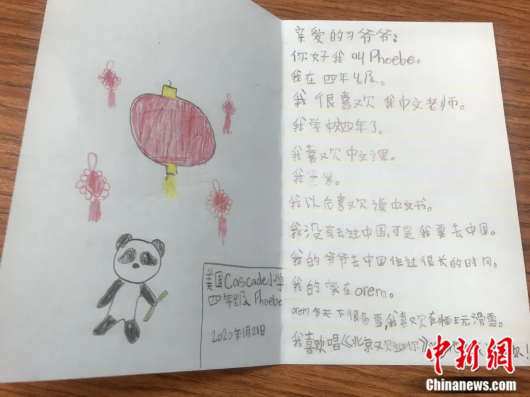 美国Cascade小学
四年级 Phoebe
2020年1月21日
亲爱的习爷爷:
你好我叫Phoebe。
我在四年级。
我很喜欢我中文老师。
我学中文四年了。
我喜欢中文课。
我
我以后喜欢读中文书。
我没有去过中国,可是我要去中国。
我的爷爷去中国住过很长的时间。
我的家在orem。
orem冬天下很多雪,我喜欢在犹他滑雪。
我喜欢唱《北京欢迎你》
中新网
Chinanews.com